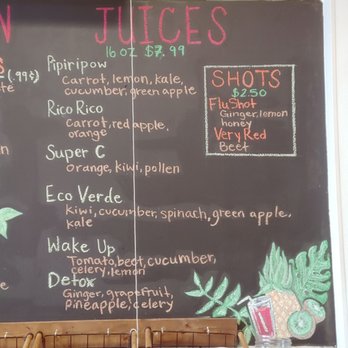 N JUICES
16 oz $7.99
(.99¢)
Pipiripow
Carrot, lemon, kale,
cucumber, green apple
Rico Rico
Carrot, red apple,
orange
Super C
orange, kiwi, pollen
Eco Verde
kiwi, cucumber, spinach, green apple,
kale
Wake Up
Tomato, beet, cucumber,
celery, lemon
Detox
Ginger, grapefruit,
Pineapple, celery
SHOTS
$2.50
Flu Shot
Ginger, lemon
honey
Very Red
Beet